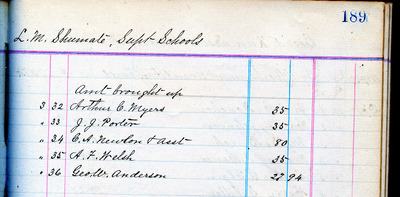 189
L. M. Shumate, Supt Schools
Amt brought up
3 32 Arthur C. Myers 35
" 33 J. J. Porter 35
" 34 C. A. Newlon & asst 80
" 35 A. F. Welsh 35
" 36 Geo. W. Anderson 27 94